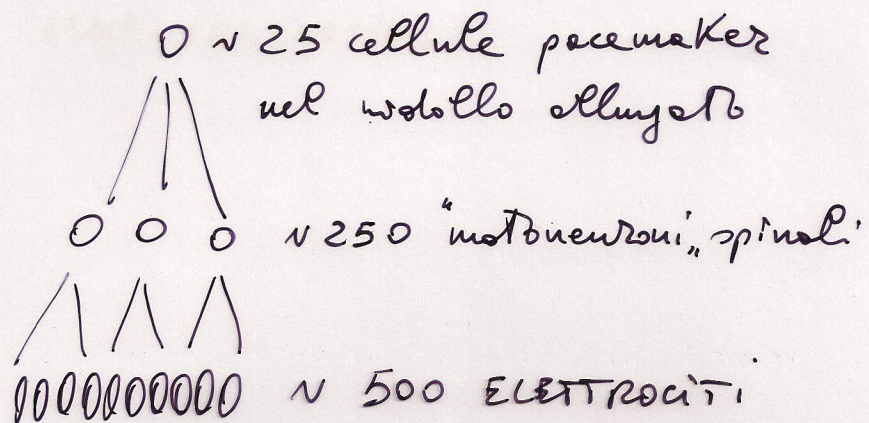 ~ 25 cellule pacemaker
nel midollo allungato
~ 250 "motoneuroni" spinali
~ 500 ELETTROCITI